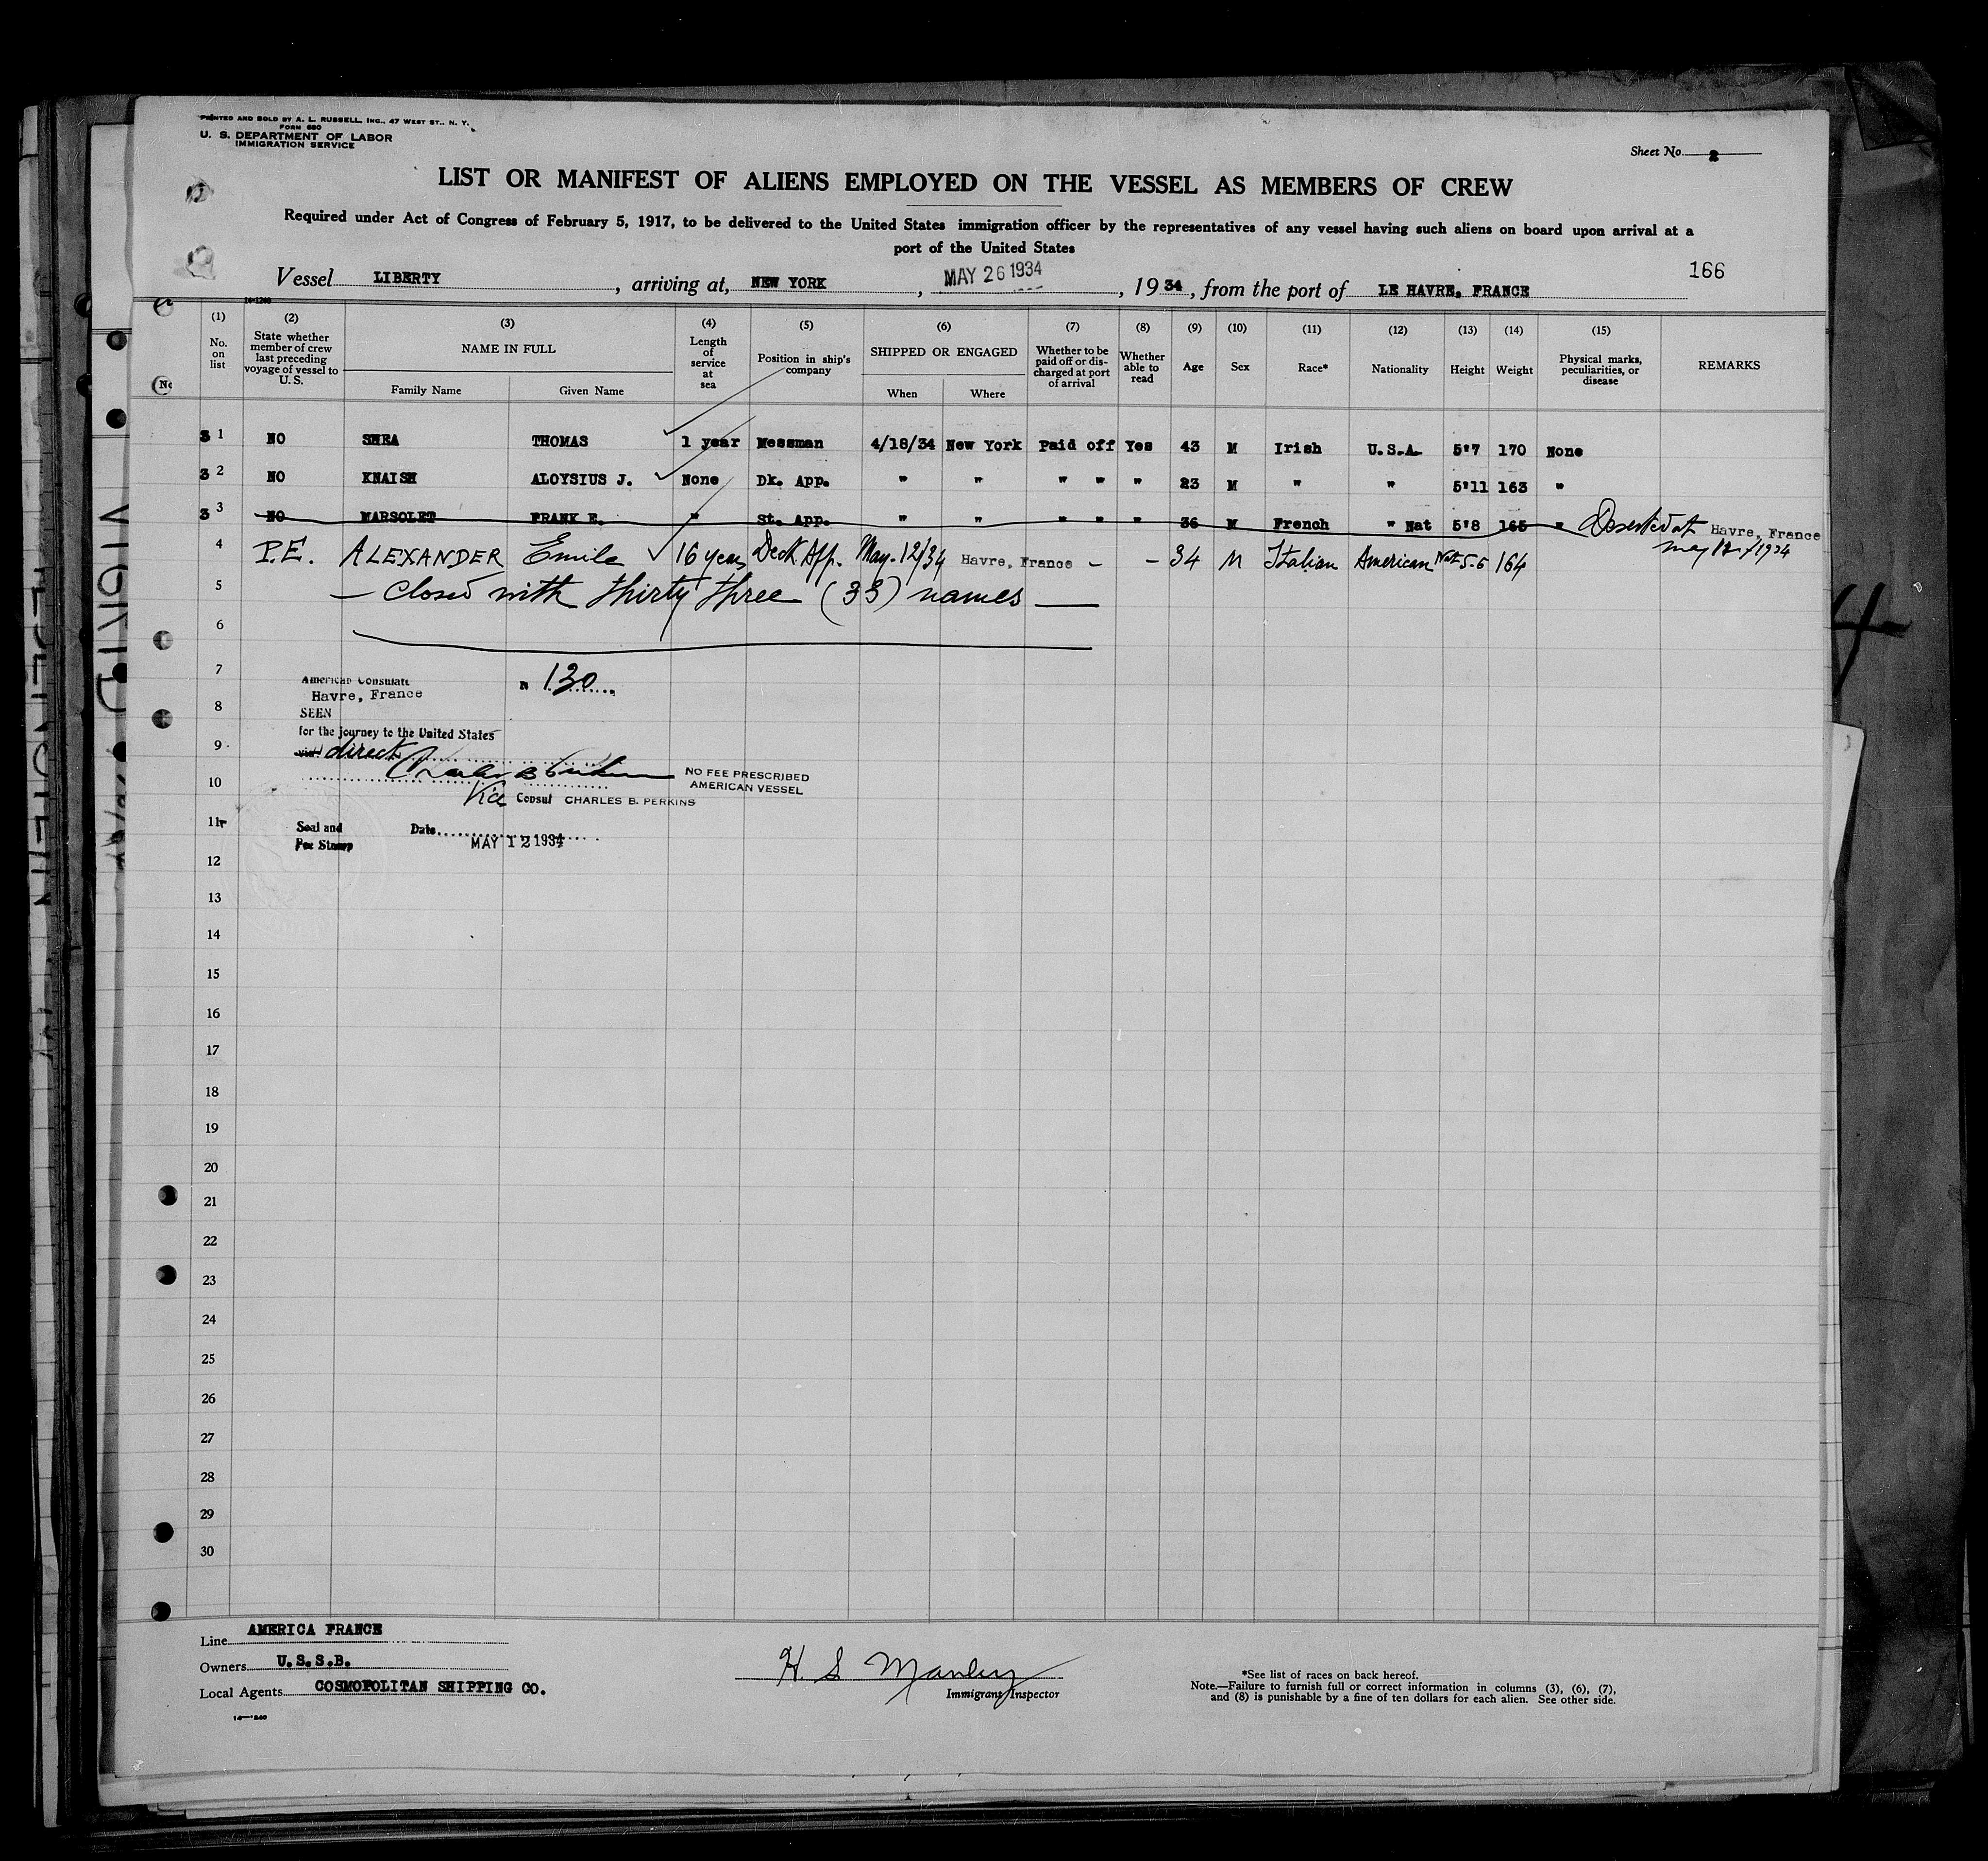 PRINTED AND SOLD BY A. L. RUSSELL, INC., 47 WEST ST., N. Y.
FORM 680
U. S. DEPARTMENT OF LABOR
IMMIGRATION SERVICE
Sheet No. 2
LIST OR MANIFEST OF ALIENS EMPLOYED ON THE VESSEL AS MEMBERS OF CREW
Required under Act of Congress of February 5, 1917, to be delivered to the United States immigration officer by the representatives of any vessel having such aliens on board upon arrival at a
port of the United States
166
Vessel LIBERTY, arriving at, NEW YORK, MAY 26 1934, 19 34, from the port of LE HAVRE, FRANCE
14-1240
(1) (2) (3) (4) (5) (6) (7) (8) (9) (10) (11) (12) (13) (14) (15)
No. on list
State whether member of crew last preceding voyage of vessel to U. S.
NAME IN FULL
Family Name
Given Name
Length of service at sea
Position in ship's company
SHIPPED OR ENGAGED
When
Where
Whether to be paid off or discharged at port of arrival
Whether able to read
Age
Sex
Race*
Nationality
Height
Weight
Physical marks, peculiarities, or disease
REMARKS
3 1 NO SHEA THOMAS 1 year Messman 4/18/34 New York Paid off Yes 43 M Irish U.S.A. 5'7 170 None
3 2 NO KNAISH ALOYSIUS J. None Dk. App. " " " " " 23 M " " 5'11 163 "
3 3 NO MARSOLET FRANK E. " St. App. " " " " " 36 M French " Nat 5'8 165 " Deserted at Havre, France
May 12/1934
4 P.E. ALEXANDER Emile 16 years Deck App. May-12/34 Havre, France - - 34 M Italian American Nat 5-6 164
5 — Closed with thirty three (33) names —
6
7
8
9
10
11
12
13
14
15
16
17
18
19
20
21
22
23
24
25
26
27
28
29
30
American Consulate
Havre, France
n 130
SEEN
for the journey to the United States
via direct
NO FEE PRESCRIBED
AMERICAN VESSEL
Vice Consul CHARLES B. PERKINS
Seal and
Fee Stamp
Date MAY 12 1934
Line AMERICA FRANCE
Owners U.S.S.B.
Local Agents COSMOPOLITAN SHIPPING CO.
H S Manley
Immigrant Inspector
*See list of races on back hereof.
Note.—Failure to furnish full or correct information in columns (3), (6), (7),
and (8) is punishable by a fine of ten dollars for each alien. See other side.
14—1240